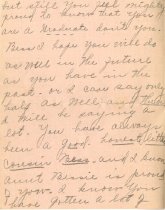 but still you feel mighty
proud to know that you
are a Graduate don't you
Bess I hope you will do
as well in the future
as you have in the
past - or I can say only
half as well and that
will be saying a
lot. You have always
been a good honest
cousin Bess. and I know
aunt Bessie is proud
of you. I know you
have gotten a lot of